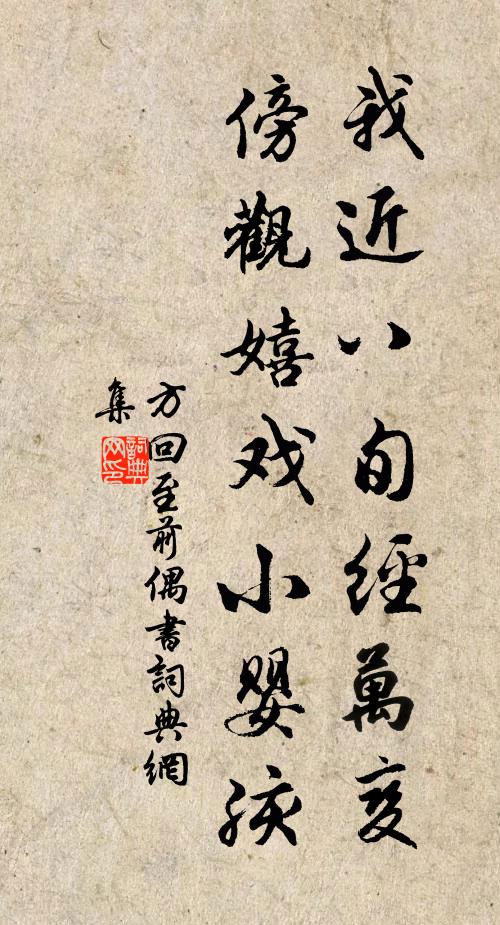 我近八旬經萬变
傍觀嬉戏小嬰孩
方回至前偶書詞典網
集
詞典網印